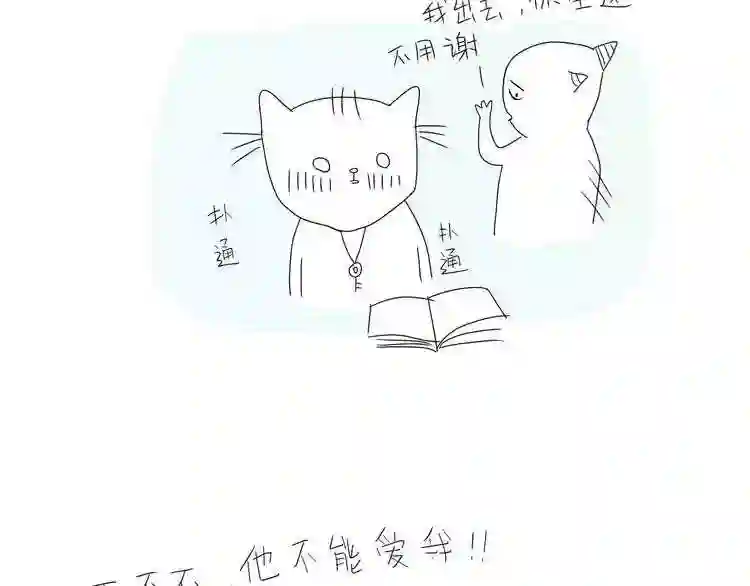 我出去,你坐这
不用谢
扑通
扑通
不不,他不能爱我!!